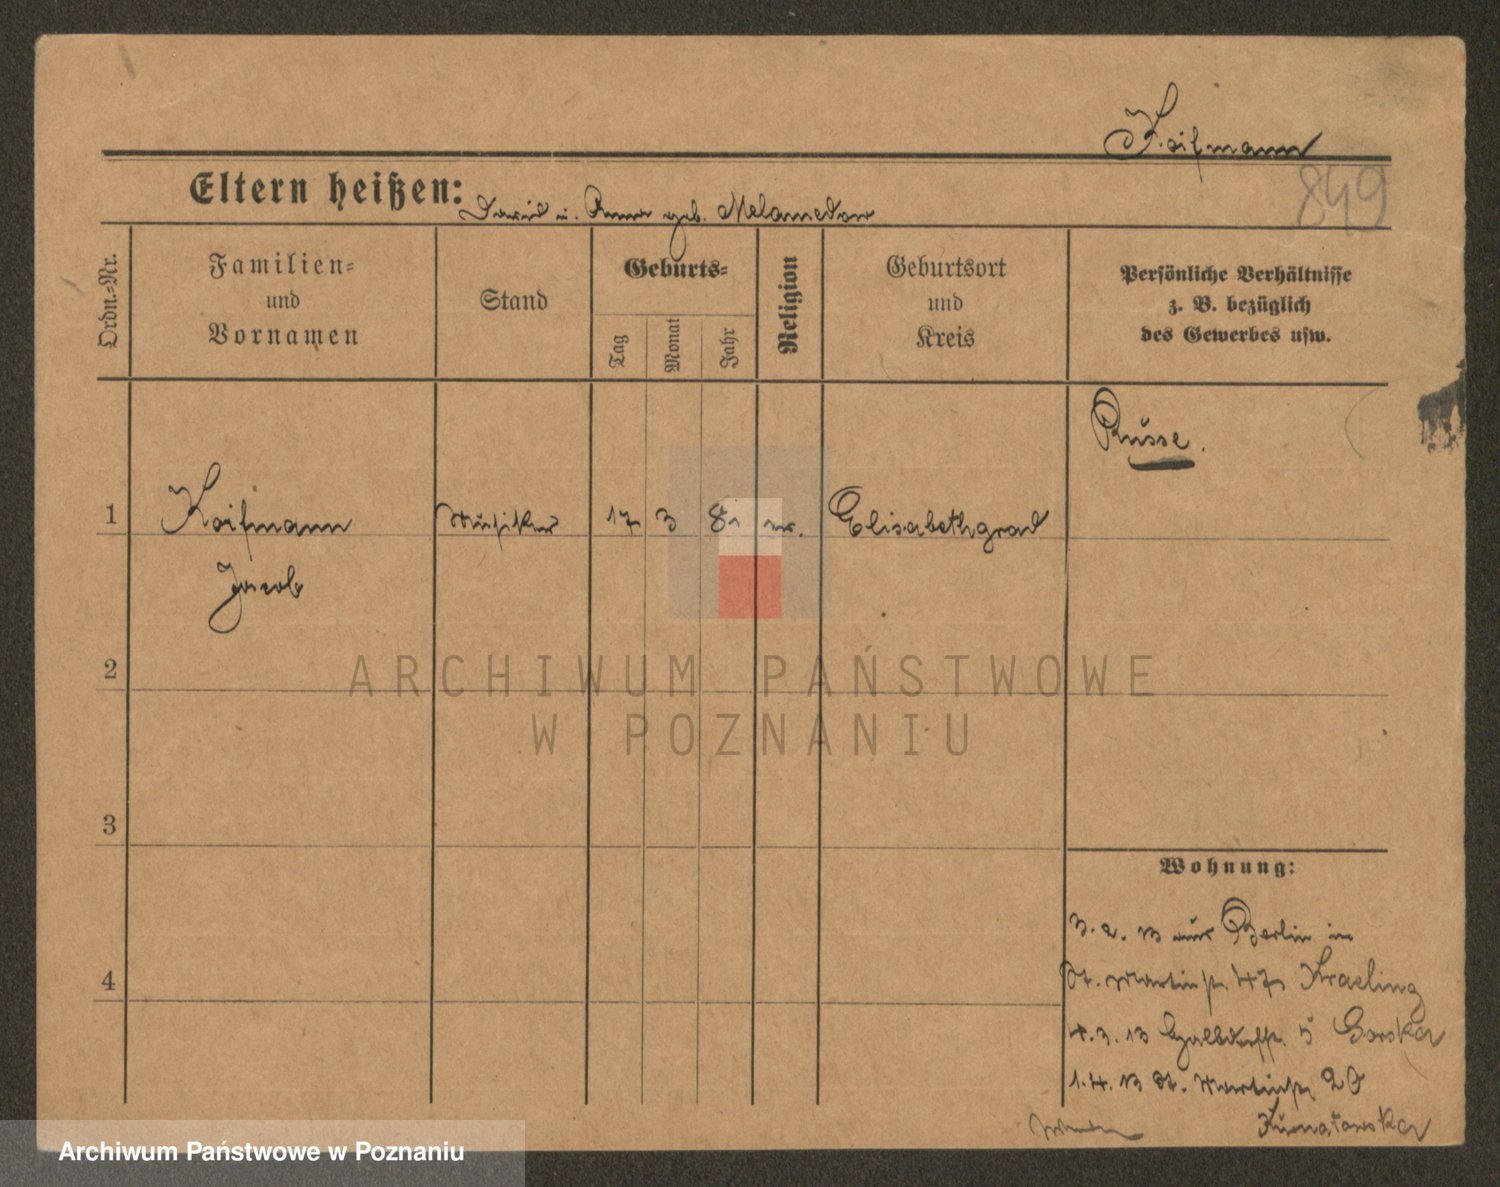 Koifmann
849
Eltern heißen: David u. Anna geb. Melamedow
Ordn.-Nr.
Familien-
und
Vornamen
Stand
Geburts-
Tag
Monat
Jahr
Religion
Geburtsort
und
Kreis
Persönliche Verhältnisse
z. B. bezüglich
des Gewerbes usw.
Russe.
1 Koifmann Musiker 17 3 81 mos. Elisabethgrad
Jacob
2
3
4
Wohnung:
3. 2. 13 aus Berlin in
St. Martinstr. 47 Kraeling
4. 3. 13 5 Gorska
1. 4. 13 St. Martinstr. 20
ARCHIWUM PAŃSTWOWE
W POZNANIU
Archiwum Państwowe w Poznaniu